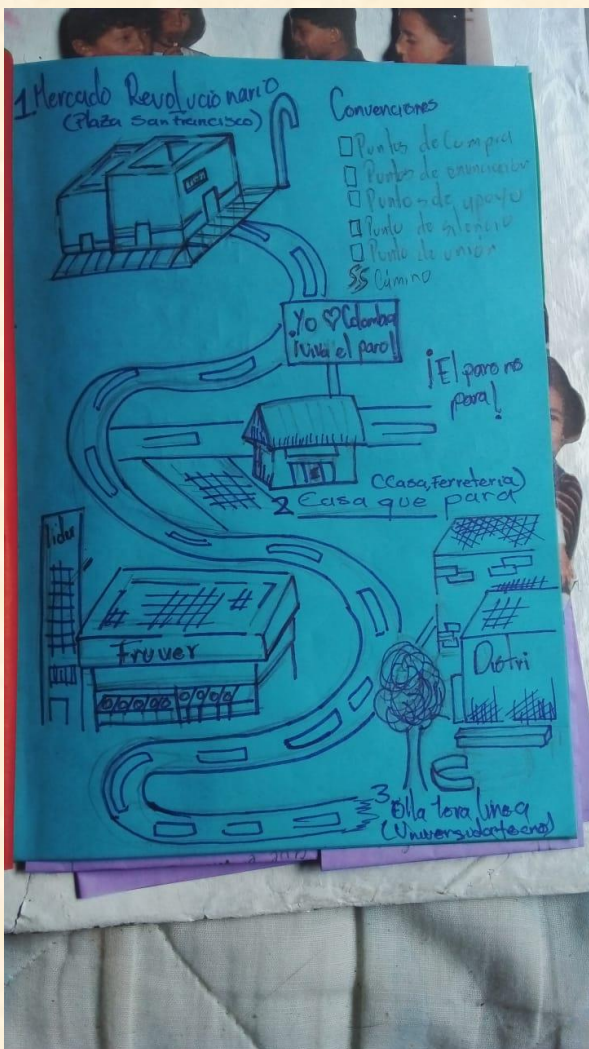 1 Mercado Revolucionario
(Plaza San francisco)
Convenciones
Puntos de Compra
Puntos de enunciación
Puntos de apoyo
Punto de silencio
Punto de unión
Camino
Yo ♡ Colombia
¡Viva el paro!
¡El paro no
para!
(Casa, Ferretería)
2 Casa que para
Fruver
Distri
3. Olla
(